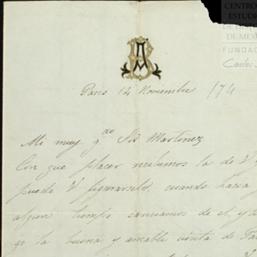 CENTRO
ESTUD
DE MÉX
FUNDA
Carlos
Paris 14 Noviembre /74
Mi muy q.do Sõr Martinez
Con que placer recibimos la de V
puede V figurarselo, cuando hacia
algun tiempo careciamos de el, y
la buena y amable visita de